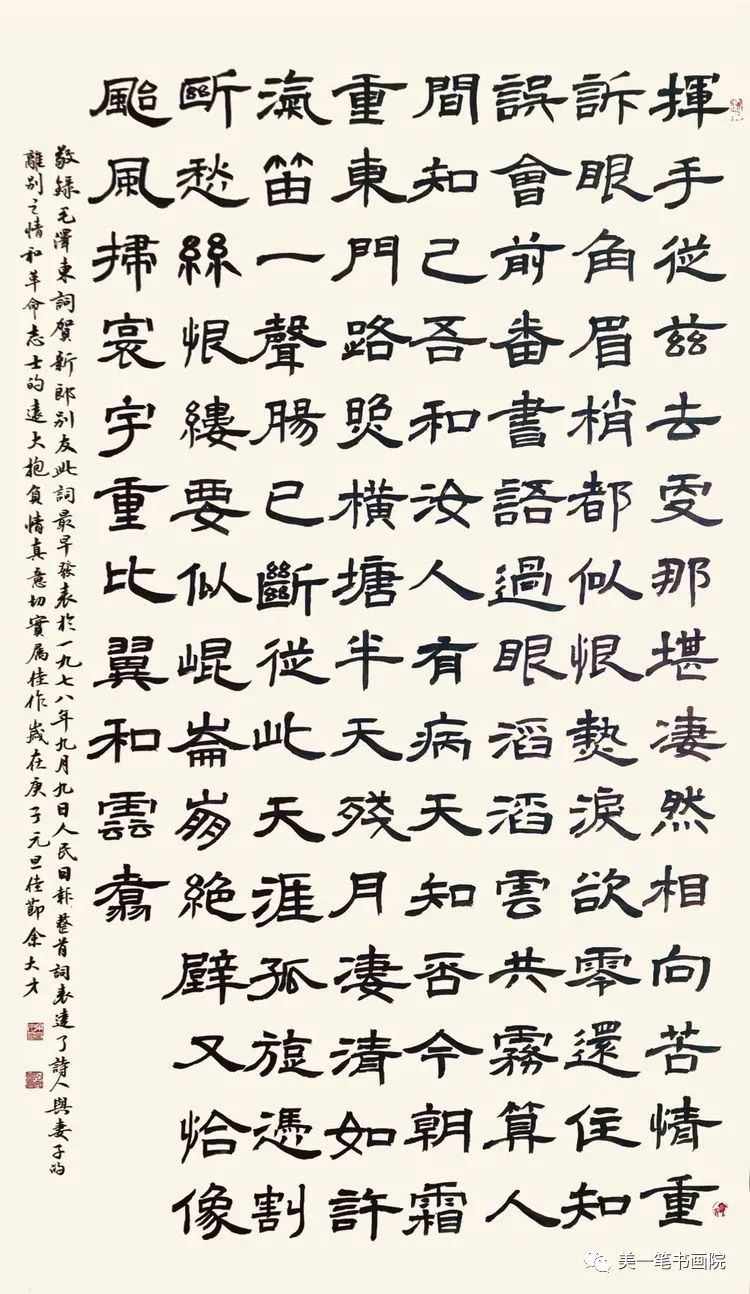 揮手從茲去更那堪凄然相向苦情重
訴眼角眉梢都似恨熱淚欲零還住知
誤會前番書語過眼滔滔雲共霧算人
間知己吾和汝人有病天知否今朝霜
重東門路照橫塘半天殘月凄清如許
滊笛一聲腸已斷從此天涯孤旅憑割
斷愁絲恨縷要似崐崙崩絕壁又恰像
颱風掃寰宇重比翼和雲翥
敬錄毛澤東詞賀新郎別友此詞最早發表於一九七八年九月九日人民日報整首詞表達了詩人與妻子的
離別之情和革命志士的遠大抱負情真意切實屬佳作歲在庚子元旦佳節余大才
美一笔书画院